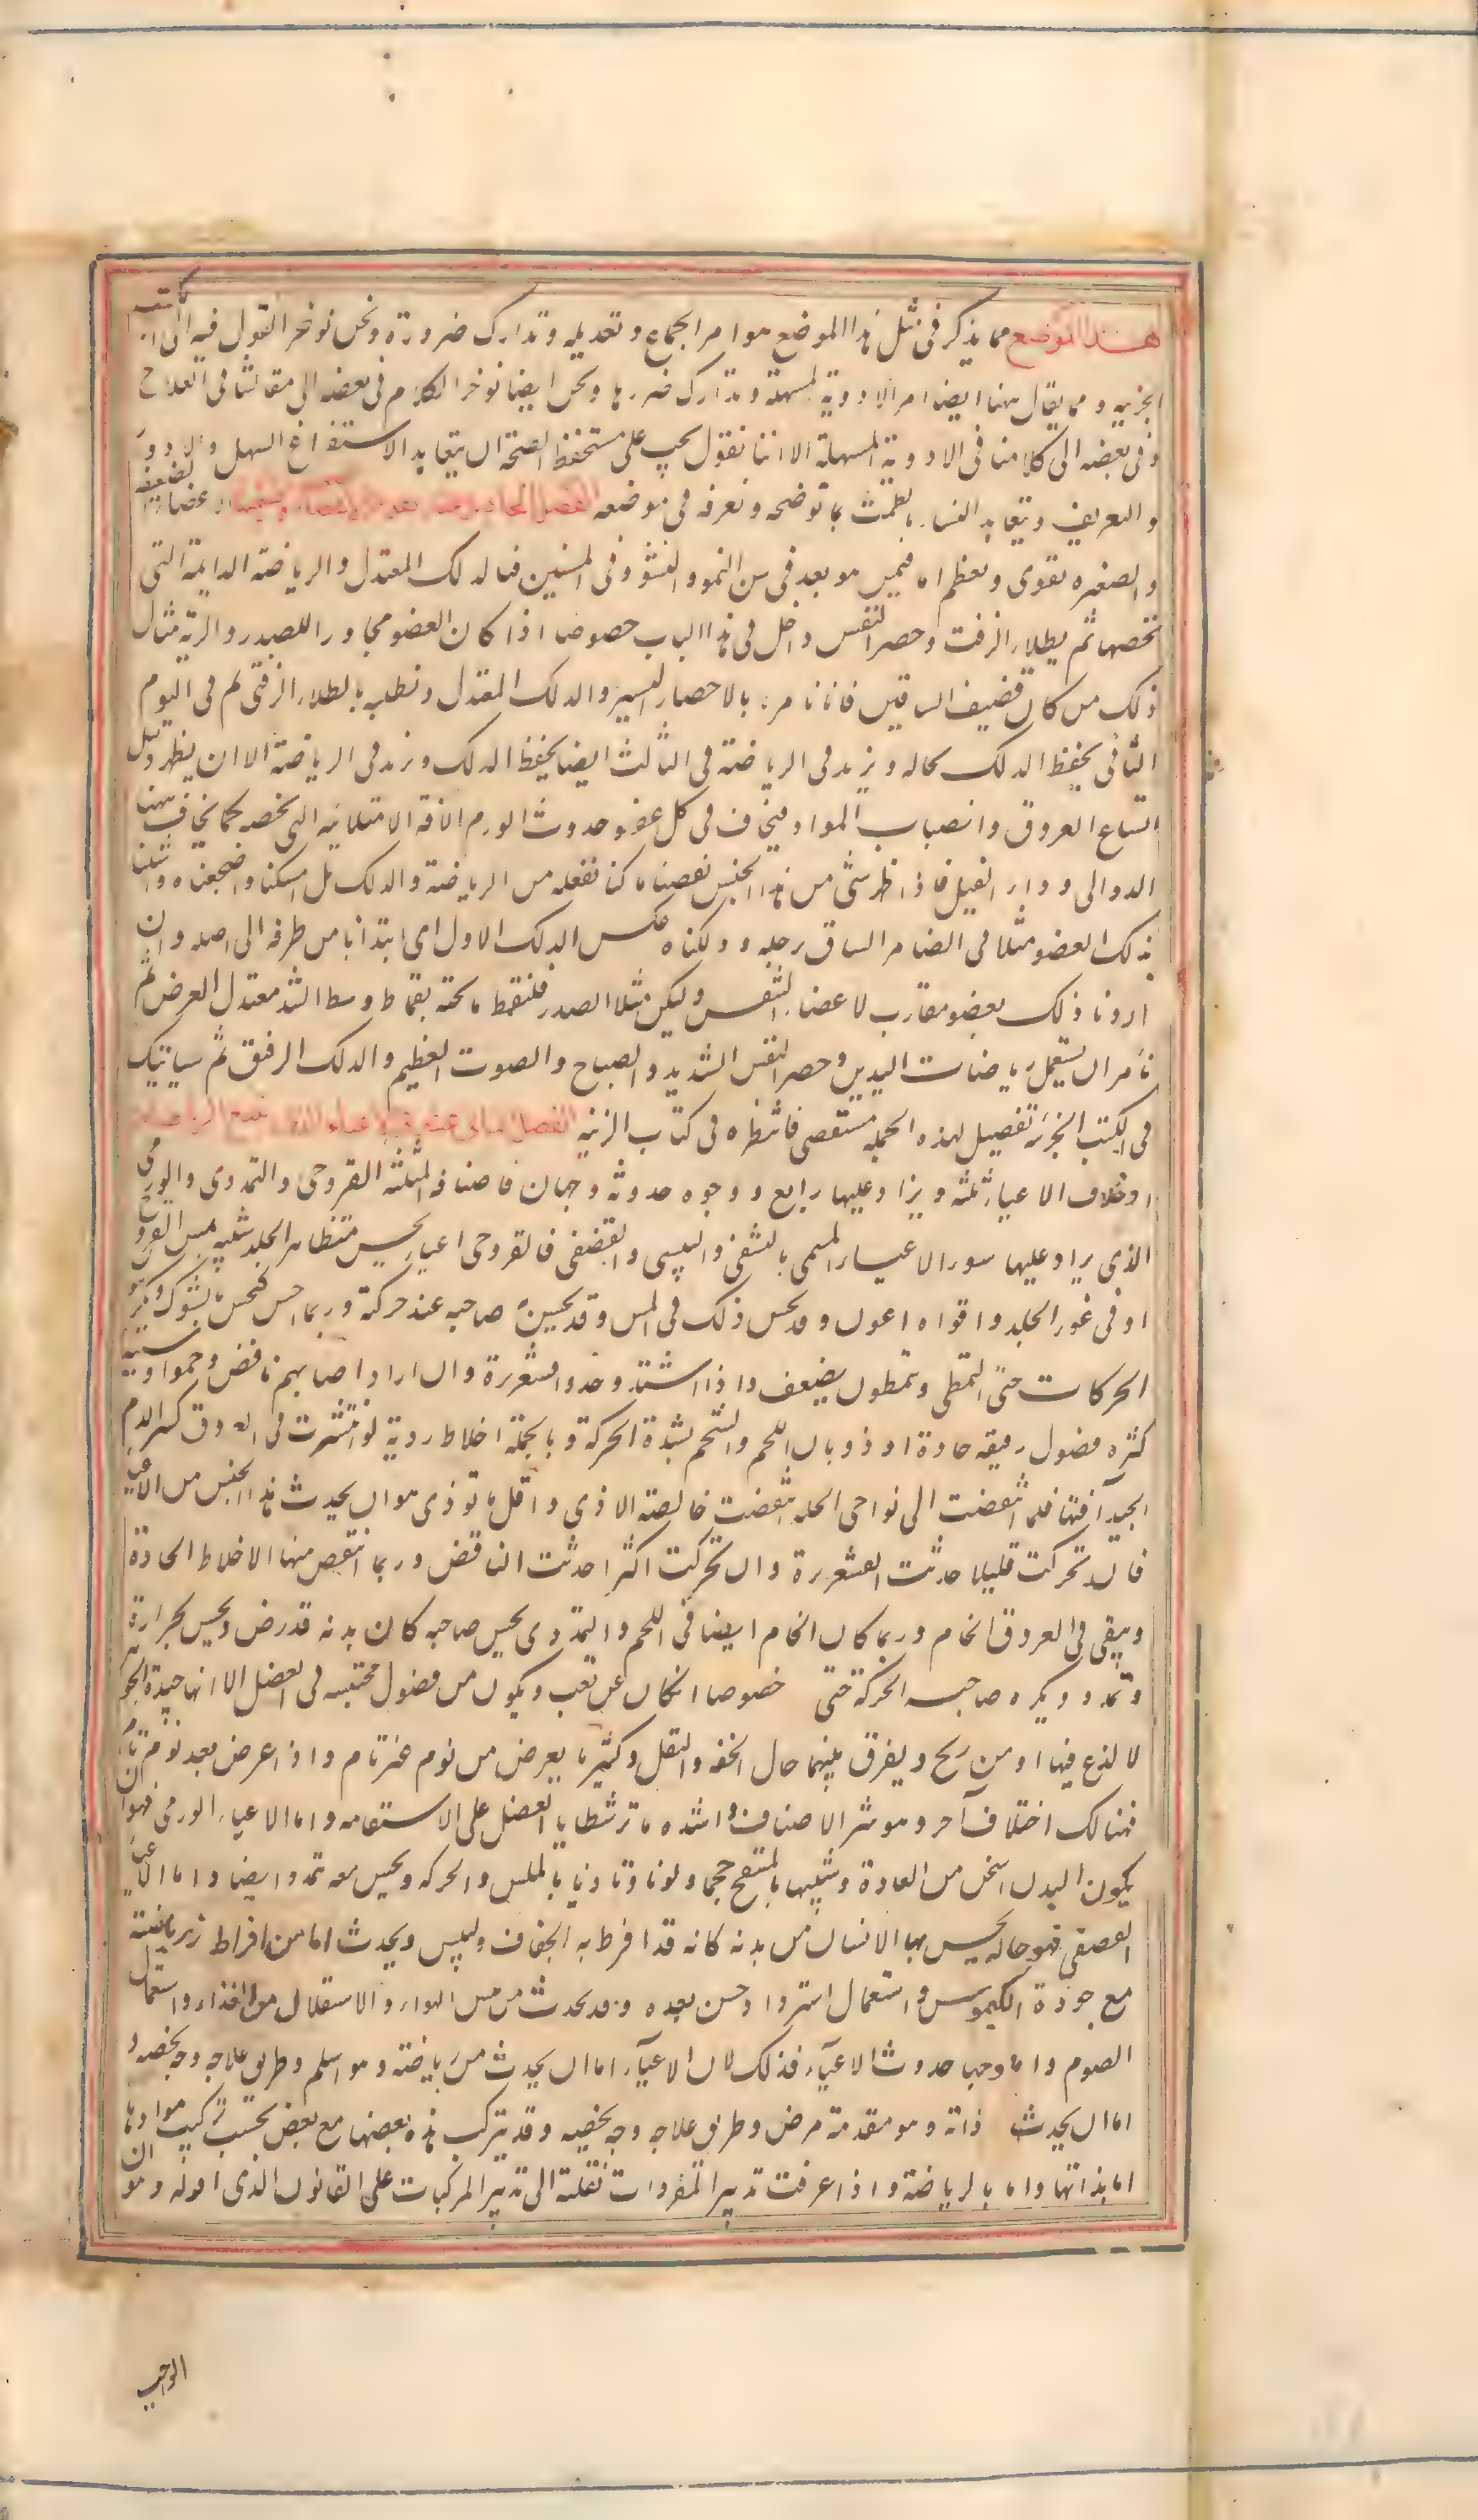 هذا الموضع مما يذكر فى مثل هذا الموضع هو امر الجماع وتعديله وتدارك ضرورته ونحن نوخر القول فيه الى الكتب
الجزئيه ومما يقال ههنا ايضا امر الادوية المسهلة وتدارك ضررها ونحن ايضا نوخر الكلام فى بعضه الى مقالتنا فى العلاج
وفى بعضه الى كلامنا فى الادوية المسهلة الا اننا نقول يجب على مستحفظ الصحة ان يتعاهد الاستفراغ المسهل والادرار
والتعريق وتتعاهد النساء بالطمث بما نوضحه ونعرفه فى موضعه الفصل الاعضاء الضعيفه
والصغيره تقوى وتعظم اما فيمن هو بعد فى سن النمو والنشو وفى المسنين فبالدلك المعتدل والرياضة الدايمة التى
تخصها ثم بطلاء الزفت وحصر النفس داخل فى هذا الباب خصوصا اذا كان العضو مجاورا للصدر والرية مثال
ذلك من كان قضيف الساقين فاننا نامره بالاحصار اليسير والدلك المعتدل ونطليه بالطلاء الزفتى ثم فى اليوم
الثانى يحفظ الدلك بحاله ويزيد فى الرياضة فى الثالث ايضا يحفظ الدلك ونزيد فى الرياضة الا ان يظهر دليل
اتساع العروق وانصباب المواد فيخاف فى كل عضو حدوث الورم الافة الامتلائيه التى تخصه كما يخاف ههنا
الدوالى وداء الفيل فاذا ظهر شئ من هذا الجنس نقصنا ما كنا نفعله من الرياضة والدلك بل امسكنا واضجعناه وشلنا
بذلك العضو مثلا فى الضامر الساق رجله ودلكناه عكس الدلك الاول اى ابتدأنا من طرفه الى اصله وان
اردنا ذلك بعضو مقارب لاعضاء التنفس وليكن مثلا الصدر فلنقمط ما تحته بقماط وسط الشد معتدل العرض ثم
نأمر ان يستعمل رياضات اليدين وحصر النفس الشديد والصياح والصوت العظيم والدلك الرقيق ثم سياتيك
فى الكتب الجزئية تفصيل لهذه الجمله مستقصى فانتظره فى كتاب الزينه الفصل
اصناف الاعياء ثلثه ويزاد عليها رابع ووجوه حدوثه وجهان فاصنافه الثلثة القروحى والتمددى والورمى
الذى يزاد عليها هو الاعياء المسمى بالقشفى واليبسى والقضفى فالقروحى اعياء يحس منه ظاهر الجلد شبيه بمس القروح
او فى غور الجلد واقواه اغوره وقد يحس ذلك فى المس وقد يحسن صاحبه عند حركته وربما احس كنخس الشوك ويكره
الحركات حتى التمطى وتمطون بضعف واذا اشتد وجدوا قشعريرة وان زاد اصابهم نافض وحموا وسببه
كثره فضول رقيقه حادة او ذوبان اللحم والشحم لشدة الحركة وبالجملة اخلاط ردية لو انتشرت فى العروق كسر الدم
الجيد آفتها فلما انتفضت الى نواحى الجلد انتفضت خالصة الاذى واقل ما توذى هو ان يحدث هذا الجنس من الاعياء
فان تحركت قليلا حدثت القشعريرة وان تحركت اكثر احدثت النافض وربما انتقص منها الاخلاط الحادة
ويبقى فى العروق الخام وربما كان الخام ايضا فى اللحم والتمددى يحس صاحبه كان بدنه قد رض ويحس بحرارة
وتمدد ويكره صاحبه الحركة حتى خصوصا ان كان عن تعب ويكون من فضول محتبسه فى العضل الا انها جيدة الجوهر
لا لذع فيها او من ريح ويفرق بينهما حال الخفه والثقل وكثيرا ما يعرض من نوم غير تام واذا عرض بعد نوم تام
فهنالك اختلاف آخر وهو شر الاصناف واشده ما وتر شظايا العضل على الاستقامه واما الاعياء الورمى فهو ان
يكون البدن اسخن من العادة وشبيها بالمنتفخ حجما ولونا وتاذيا بالملمس والحركه ويحس معه تمدد ايضا واما الاعياء
القضفى فهو حالة يحس بها الانسان من بدنه كانه قد افرط به الجفاف واليبس ويحدث اما من افراط رياضة
مع جودة الكيموس واستعمال استرداد خشن بعده وقد يحدث من يبس الهواء والاستقلال من الغذاء واستعمال
الصوم واما وجها حدوث الاعياء فذلك لان الاعياء اما ان يحدث من رياضة وهو اسلم وطريق علاجه وجه يخصه و
اما ان يحدث ذاته وهو مقدمة مرض وطريق علاجه وجه يخصه وقد يتركب هذه بعضها مع بعض بحسب تركيب موادها
اما بذاتها واما بالرياضة واذا عرفت تدبير المفردات نقلته الى تدبير المركبات على القانون الذى اقوله وهو ان
الواجب